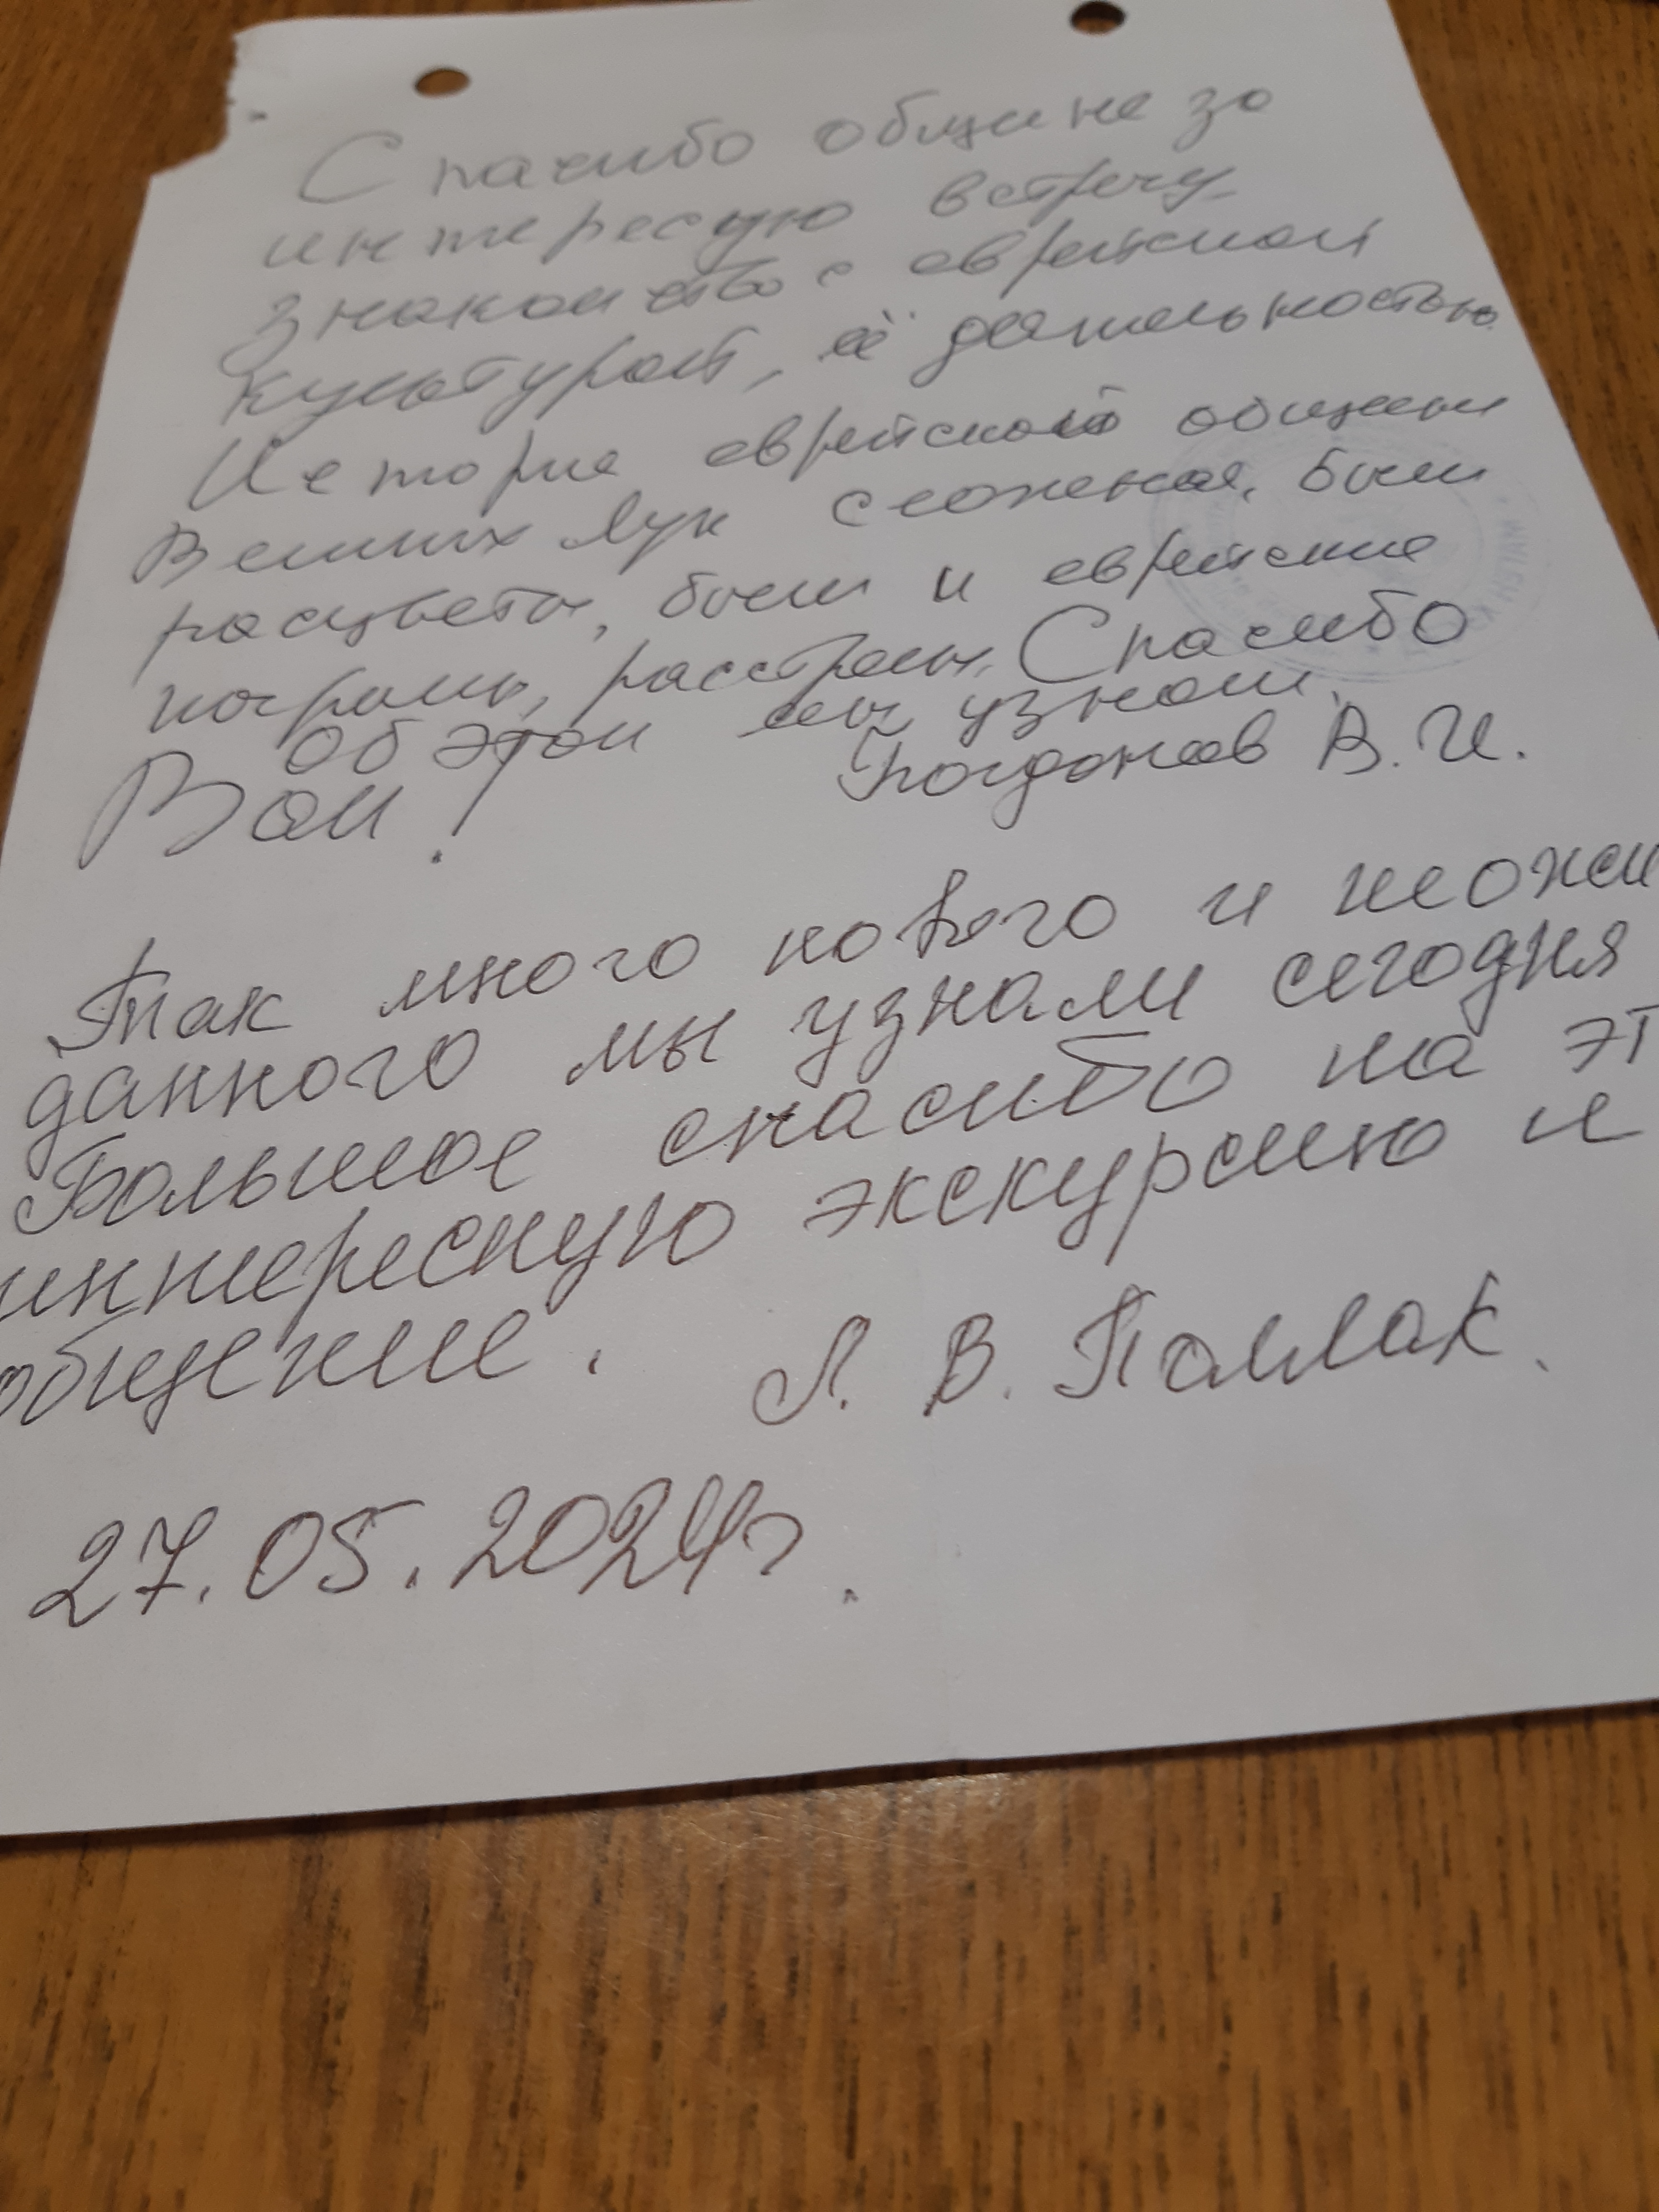 Спасибо общине за
интересую встречу
знакомство с еврейской
культурой, её деятельностью.
История еврейской общины
Великих Лук сложная, были
расцветы, были и еврейские
погромы, расстрелы. Спасибо
Об этом мы узнали.
Вам!
Богданов В. И.
Так много нового и неожи
данного мы узнали сегодня
Большое спасибо на эт
интересную экскурсию и
общение.
Л. В. Поллак.
27.05.2024г.